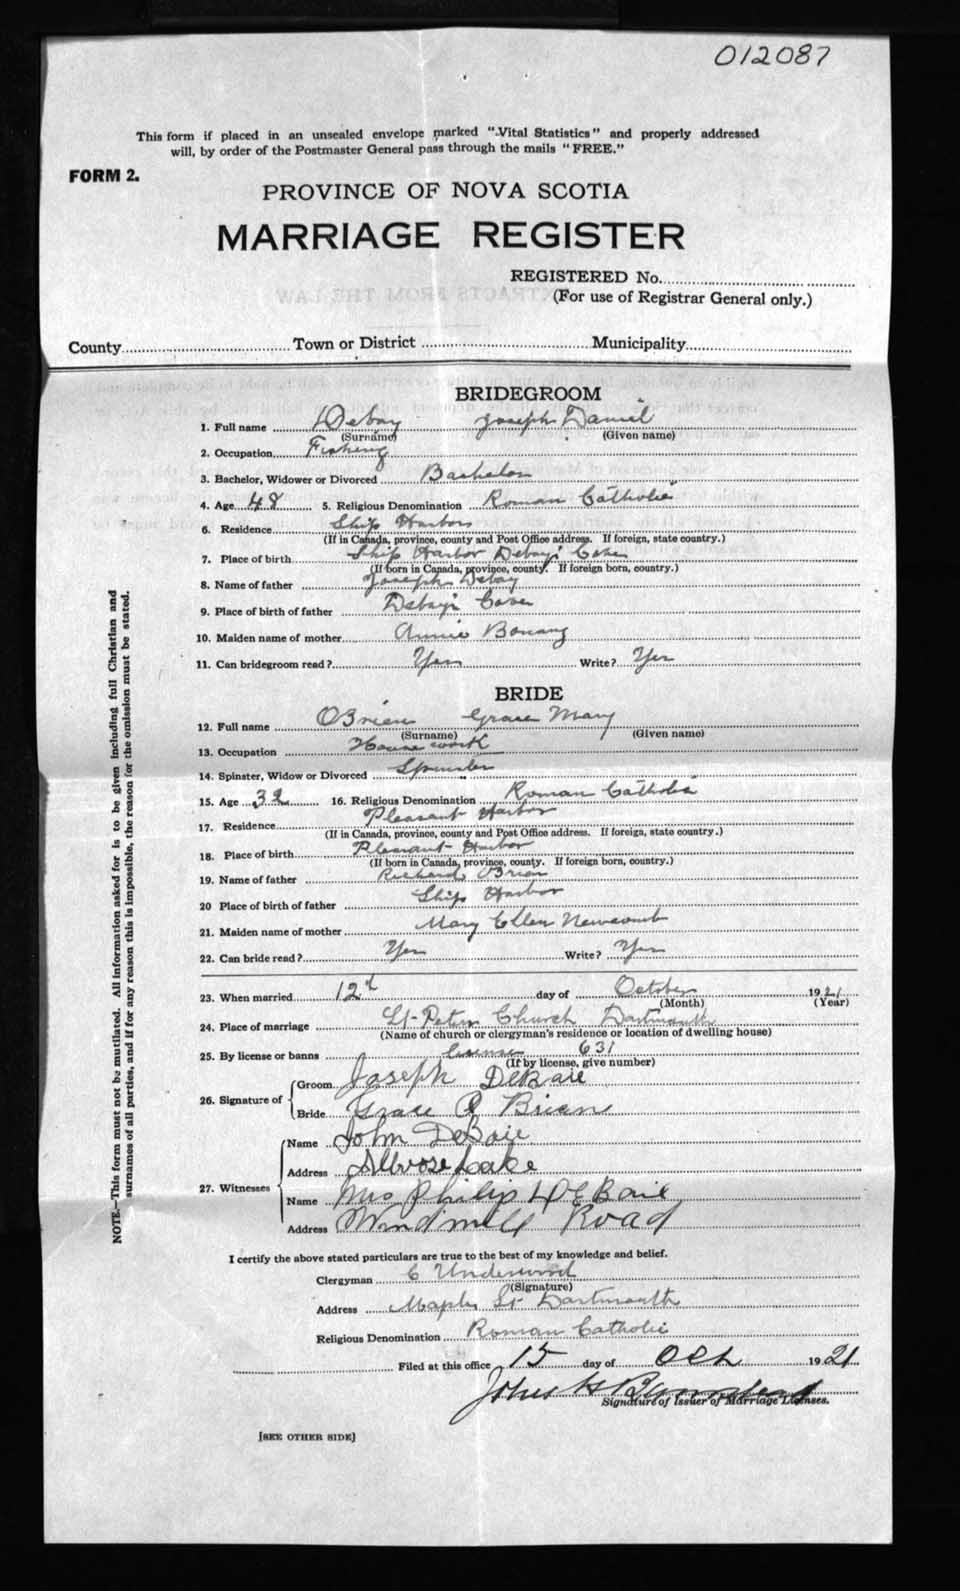 012087
This form if placed in an unsealed envelope marked "Vital Statistics" and properly addressed
will, by order of the Postmaster General pass through the mails "FREE."
FORM 2.
PROVINCE OF NOVA SCOTIA
MARRIAGE REGISTER
REGISTERED No.
(For use of Registrar General only.)
County Town or District Municipality
BRIDEGROOM
1. Full name Debay Joseph Daniel
(Surname) (Given name)
2. Occupation Fishing
3. Bachelor, Widower or Divorced Bachelor
4. Age 48 5. Religious Denomination Roman Catholic
6. Residence Ship Harbor
(If in Canada, province, county and Post Office address. If foreign, state country.)
7. Place of birth Ship Harbor Debay's Cove
(If born in Canada, province, county. If foreign born, country.)
8. Name of father Joseph Debay
9. Place of birth of father Debay's Cove
10. Maiden name of mother Annie Bonang
11. Can bridegroom read? Yes Write? Yes
BRIDE
12. Full name OBrien Grace Mary
(Surname) (Given name)
13. Occupation House work
14. Spinster, Widow or Divorced Spinster
15. Age 32 16. Religious Denomination Roman Catholic
17. Residence Pleasant Harbor
(If in Canada, province, county and Post Office address. If foreign, state country.)
18. Place of birth Pleasant Harbor
(If born in Canada, province, county. If foreign born, country.)
19. Name of father Richard OBrien
20 Place of birth of father Ship Harbor
21. Maiden name of mother Mary Ellen Newcomb
22. Can bride read? Yes Write? Yes
23. When married 12th day of October 1921
(Month) (Year)
24. Place of marriage St. Peters Church Dartmouth
(Name of church or clergyman's residence or location of dwelling house)
25. By license or banns license 631
(If by license, give number)
26. Signature of Groom Joseph DeBaie
Bride Grace O Brien
27. Witnesses Name John DeBaie
Address Lake
Name Mrs Philip DeBaie
Address Windmill Road
I certify the above stated particulars are true to the best of my knowledge and belief.
Clergyman C Underwood
(Signature)
Address Maple St Dartmouth
Religious Denomination Roman Catholic
Filed at this office 15 day of Oct 1921
Signature of Issuer of Marriage Licenses.
[SEE OTHER SIDE]
NOTE.—This form must not be mutilated. All information asked for is to be given including full Christian and
surnames of all parties, and if for any reason this is impossible, the reason for the omission must be stated.